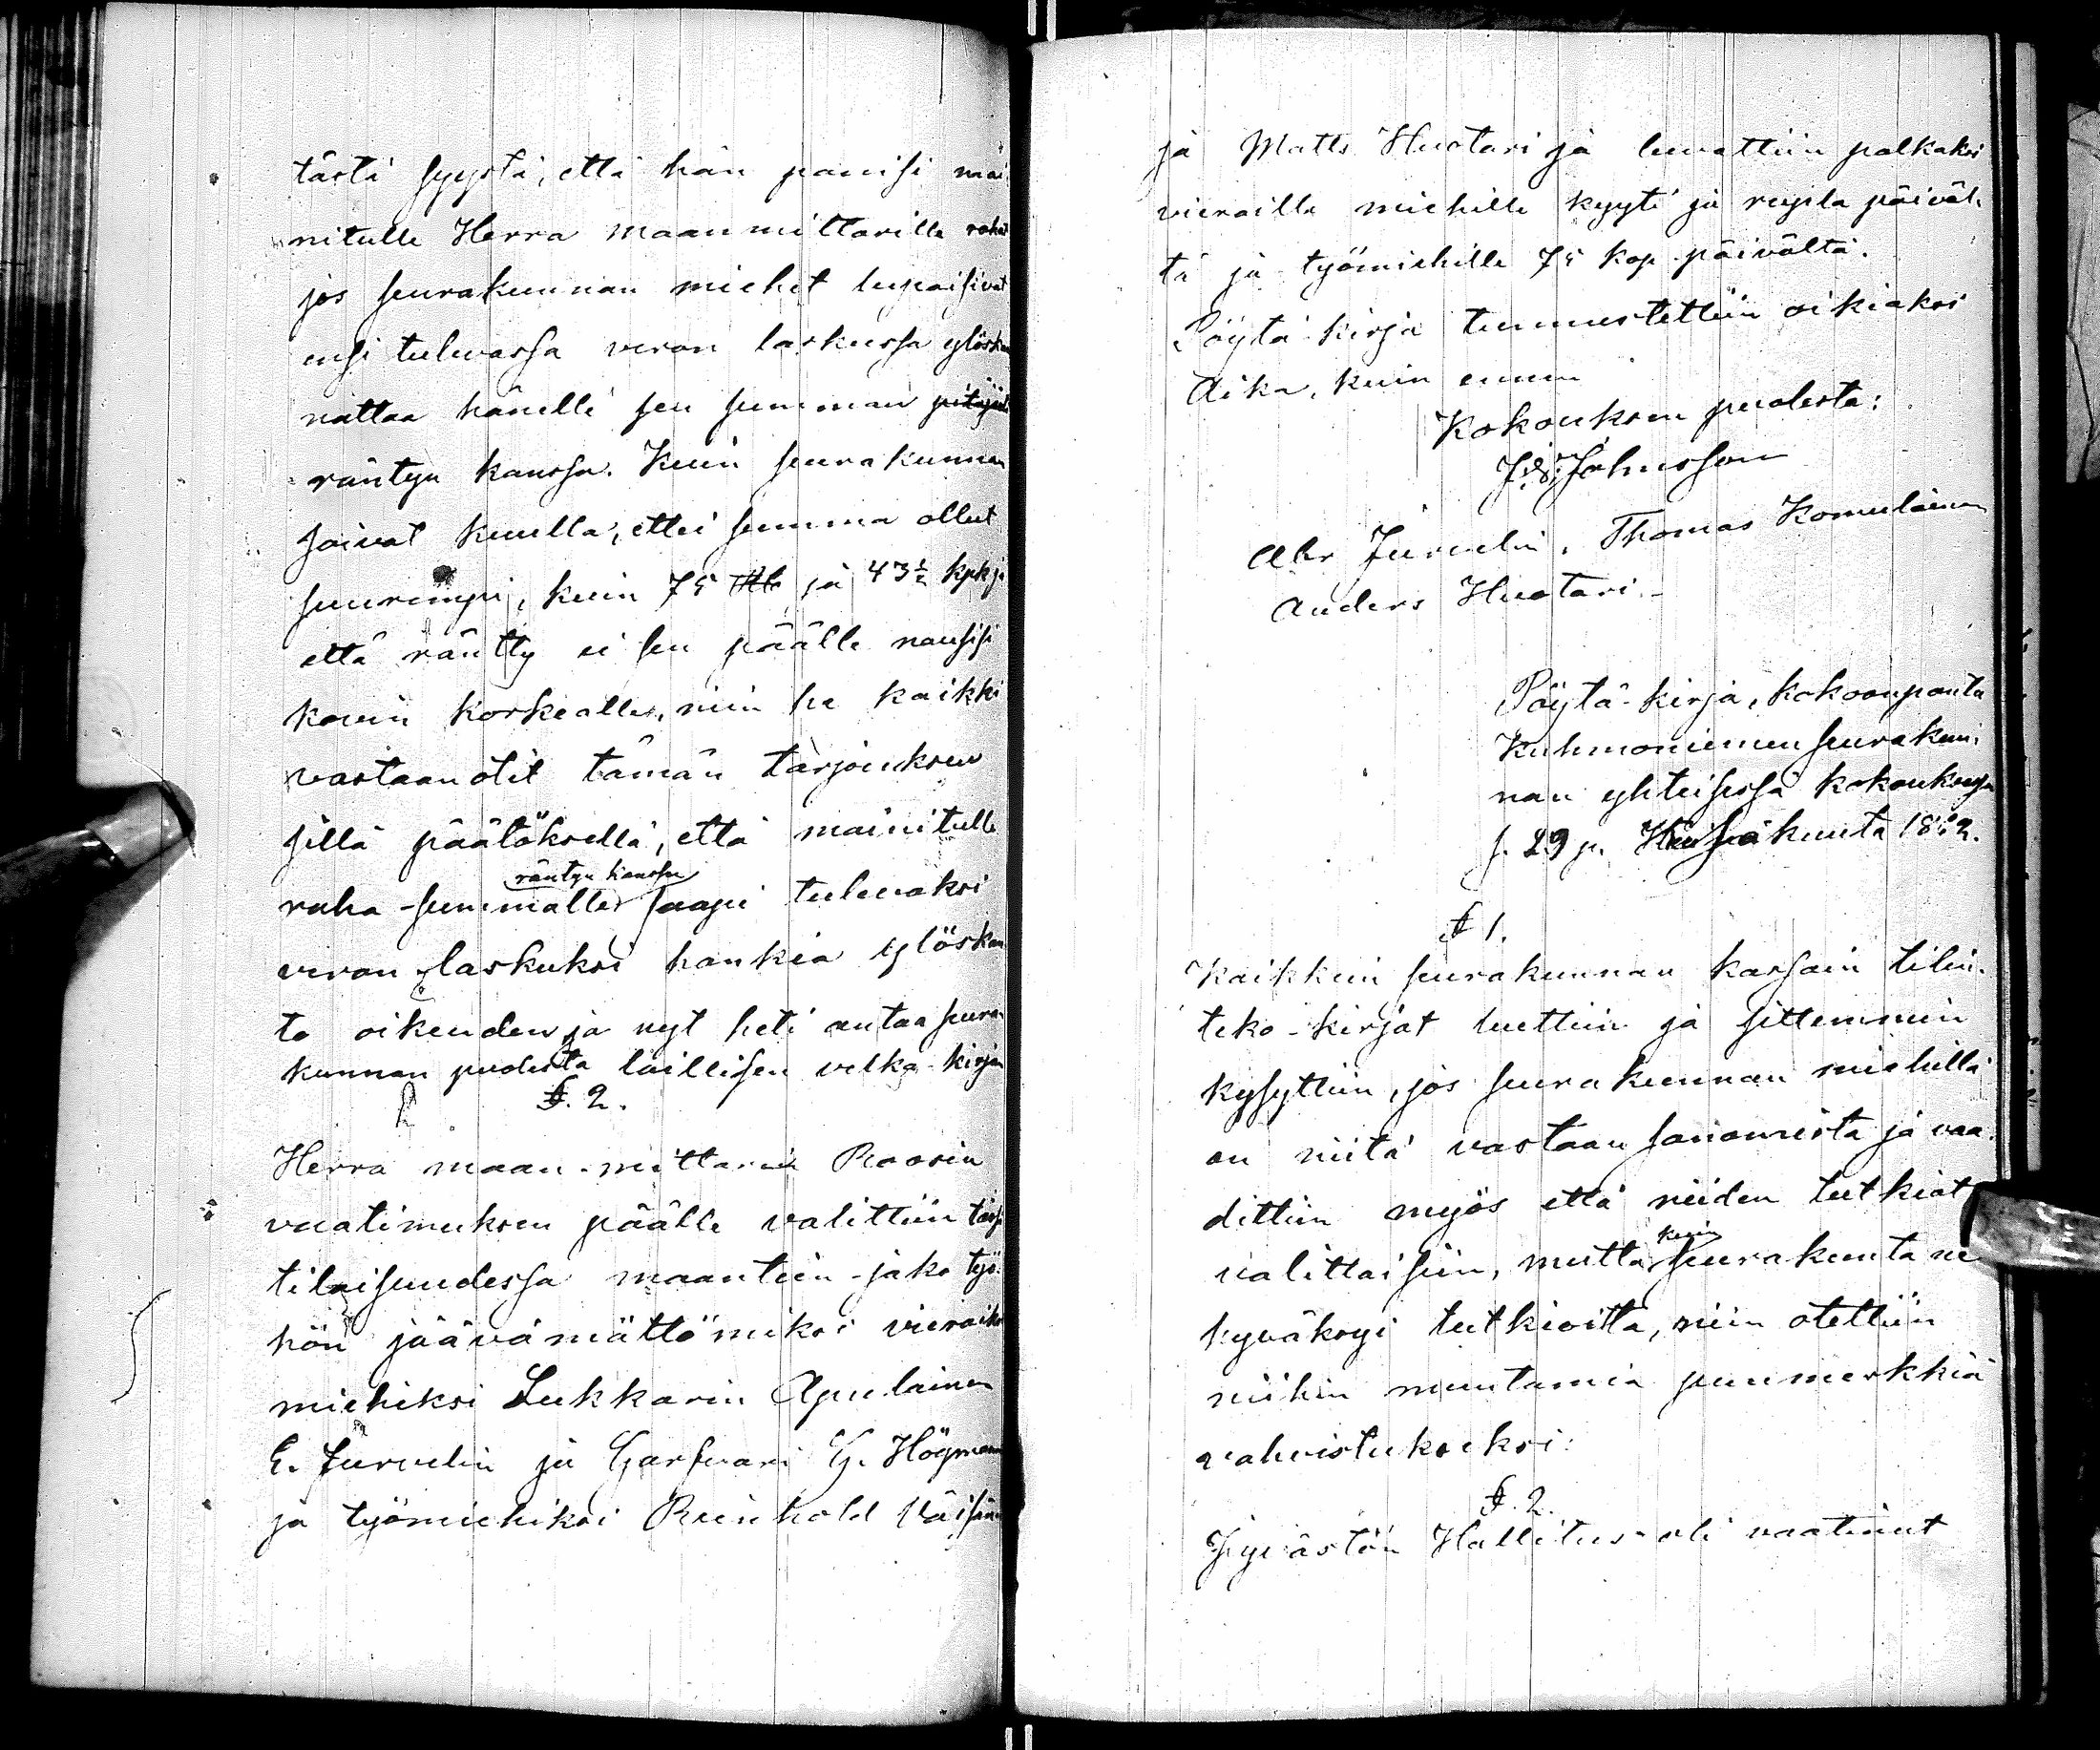 tästä syystä, että hän panisi mai
nitulle Herra maanmittarille raha
jos seurakunnan miehet lupaisivat
ensi tulevassa veron laskussa ylöskan
nattaa hänelle sen summan pitäjän
räntyn kanssa. Kuin seurakunnan
saivat kuulla, ettei summa ollut
suurempi, kuin 75 Rbl ja 43½ kpkja
että räntty ei sen päälle nousisi
kovin korkealle, niin he kaikki
vastaan otit tämän tarjouksen
sillä päätöksellä, että mainitulle
räntyn kanssa
raha-summalle saapi tulevaksi
veron laskuksi hankia ylöskan
to oikeuden ja nyt heti antaa seura
kunnan puolesta laillisen velka-kirjan
§. 2.
Herra maan-mittarin Roosin
vaatimuksen päälle valittiin tässä
tilaisuudessa maantein-jako työ
hön jäävämättömiksi vieraiksi
miehiksi Lukkarin Apulainen
E. Jurvelin ja Garfvari G. Högman
ja työmiehiksi Reinhold Väisänen
ja Matts Huotari ja luvattiin palkaksi
vieraille miehille kyyti ja rupla päiväl-
tä ja työmiehille 75 kop päivältä.
Pöytä-kirja tunnustettiin oikiaksi
Aika, kuin ennen
Kokouksen puolesta:
Johnsson
Abr Jurvelin, Thomas Komulainen
Anders Huotari.-
Pöytä-kirja, kokoonpantu
Kuhmoniemen seurakun-
nan yhteisessä kokouksessa
s. 29 p. Kesäkuuta 1862.
§ 1.
Kaikkein seurakunnan kassain tilin-
teko-kirjat luettiin ja sittemmin
kysyttiin, jos seurakunnan miehillä
on niitä vastaan sanomista ja vaa-
dittiin myös että niiden tutkiat
kuin
valittaisiin, mutta seurakunta ne
hyväksyi tutkioitta, niin otettiin
niihin muutamia puumerkkiä
vahvistukseksi:
§. 2.
Jyvästön Hallitus oli vaatinut